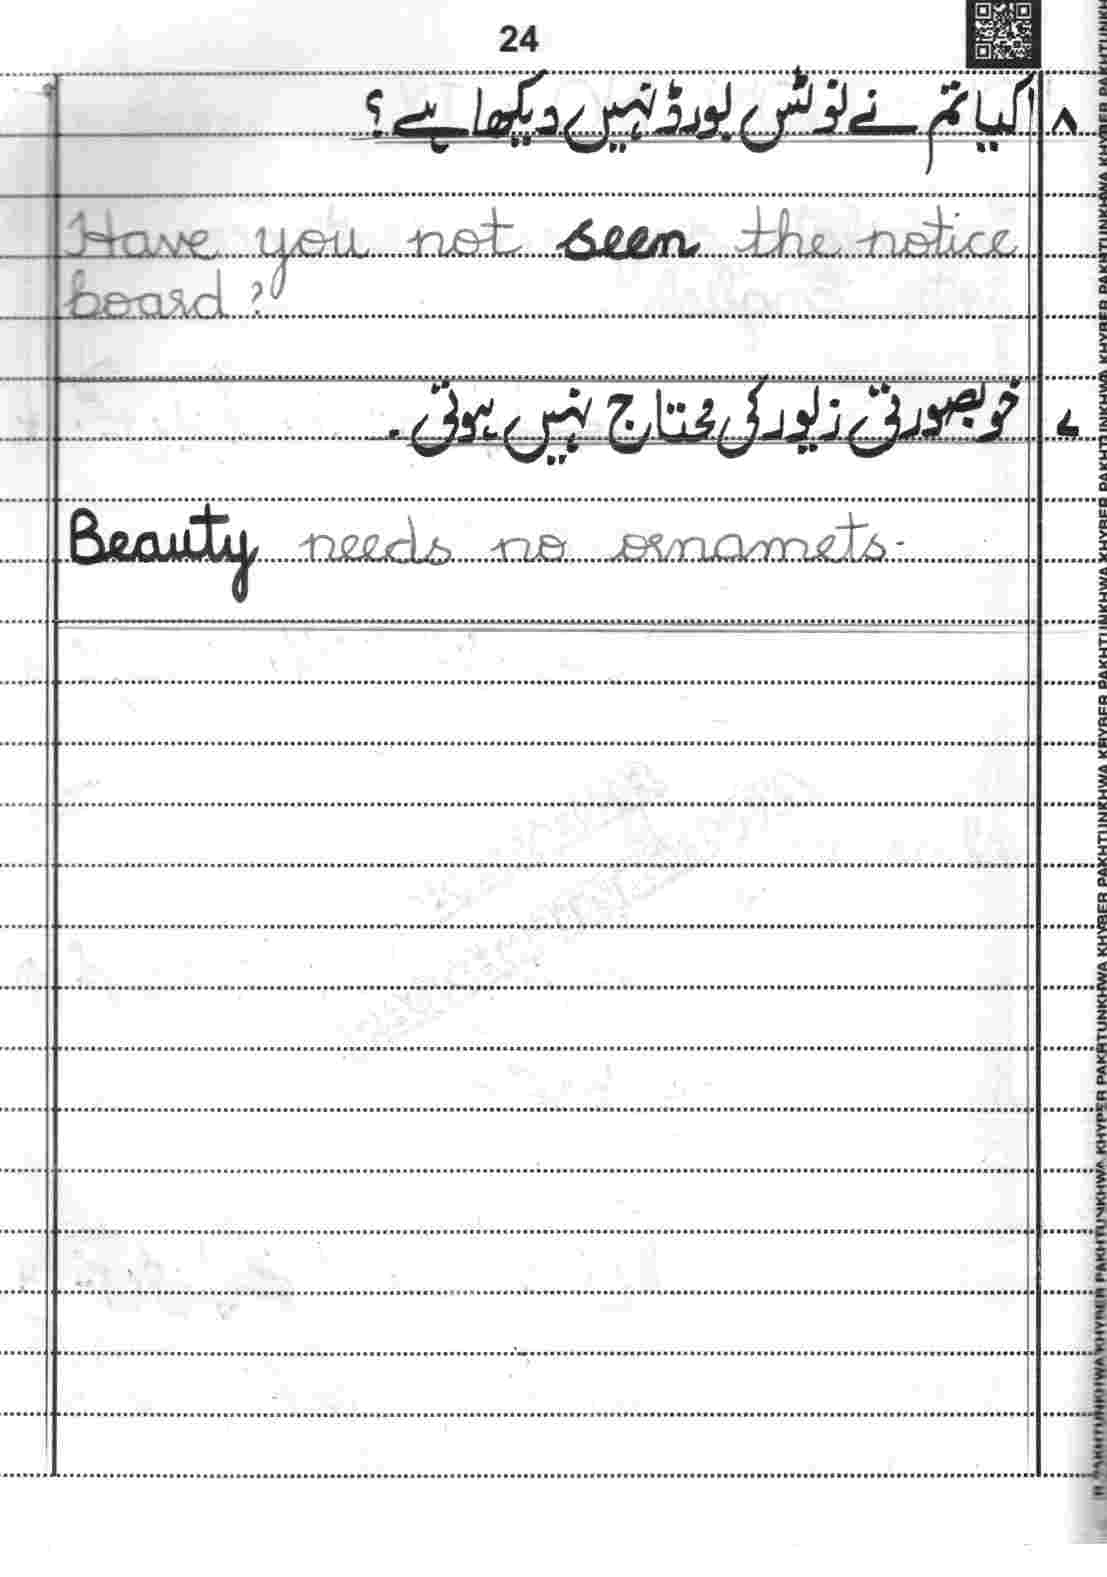 24
۸ کیا تم نے نوٹس بورڈ نہیں دیکھا ہے؟
Have you not seen the notice
board?
۷ خوبصورتی زیور کی محتاج نہیں ہوتی۔
Beauty needs no ornamets.
KHYBER PAKHTUNKHWA KHYBER PAKHTUNKHWA KHYBER PAKHTUNKHWA KHYBER PAKHTUNKHWA KHYBER PAKHTUNKHWA KHYBER PAKHTUNKHWA